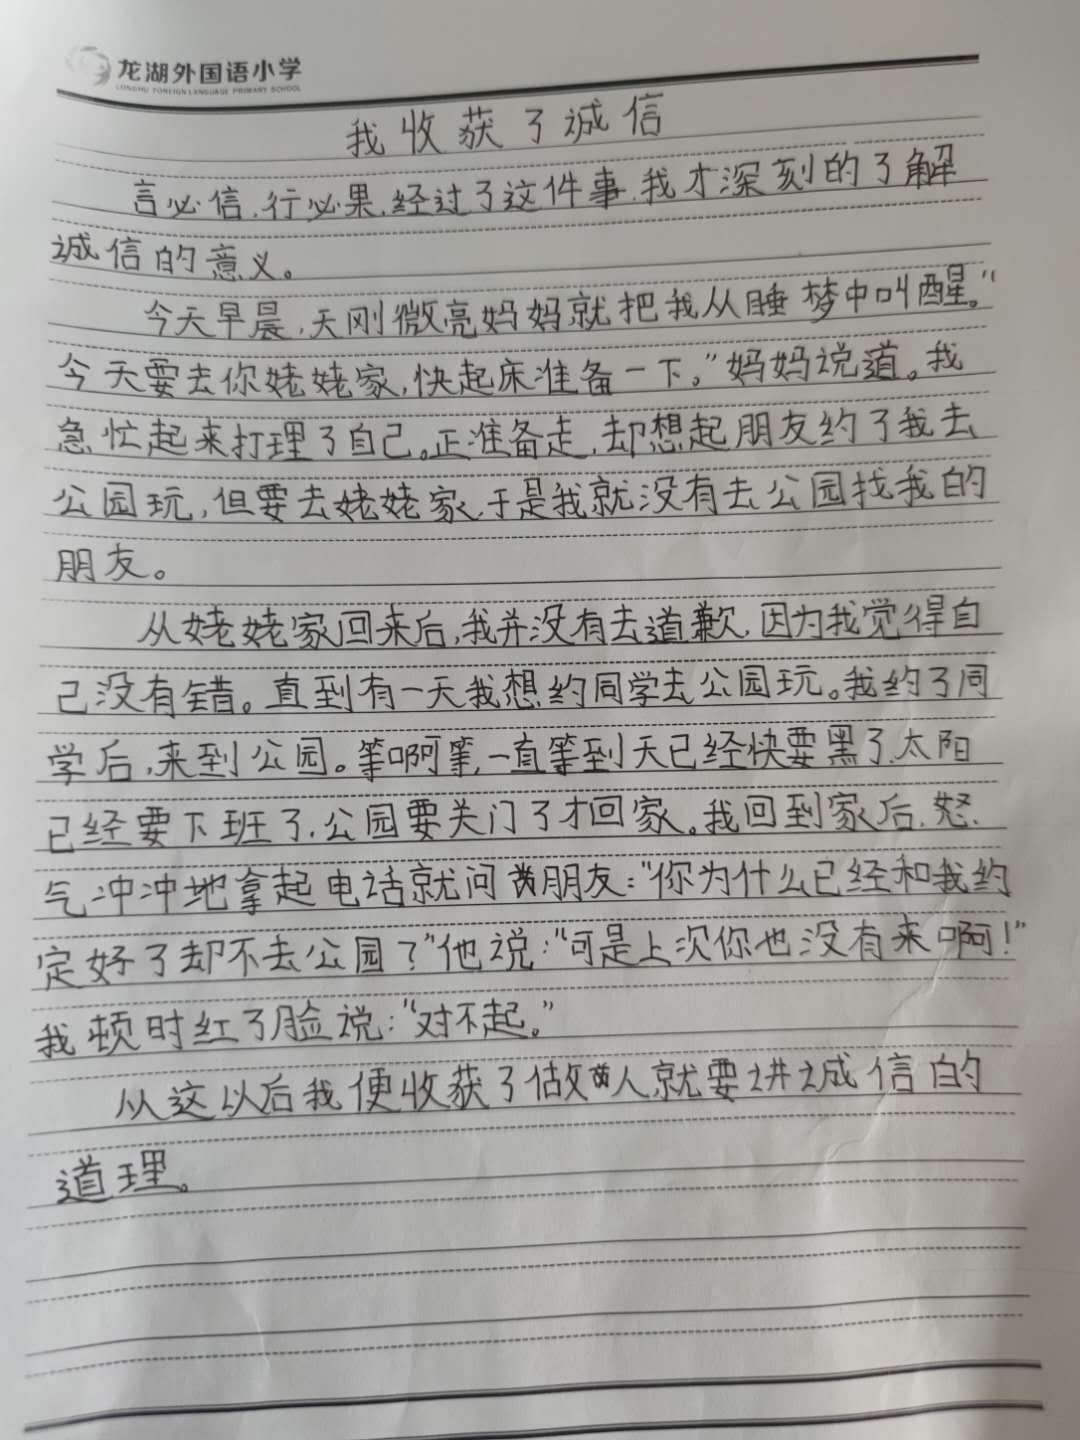 龙湖外国语小学
LONGHU FOREIGN LANGUAGE PRIMARY SCHOOL
我收获了诚信
言必信,行必果,经过了这件事,我才深刻的了解
诚信的意义。
今天早晨,天刚微亮妈妈就把我从睡梦中叫醒。“
今天要去你姥姥家,快起床准备一下。”妈妈说道。我
急忙起来打理了自己。正准备走,却想起朋友约了我去
公园玩,但要去姥姥家,于是我就没有去公园找我的
朋友。
从姥姥家回来后,我并没有去道歉,因为我觉得自
己没有错。直到有一天我想约同学去公园玩。我约了同
学后,来到公园。等啊等,一直等到天已经快要黑了,太阳
已经要下班了,公园要关门了才回家。我回到家后,怒
气冲冲地拿起电话就问朋友:“你为什么已经和我约
定好了却不去公园?”他说:“可是上次你也没有来啊!”
我顿时红了脸说:“对不起。”
从这以后我便收获了做人就要讲诚信的
道理。